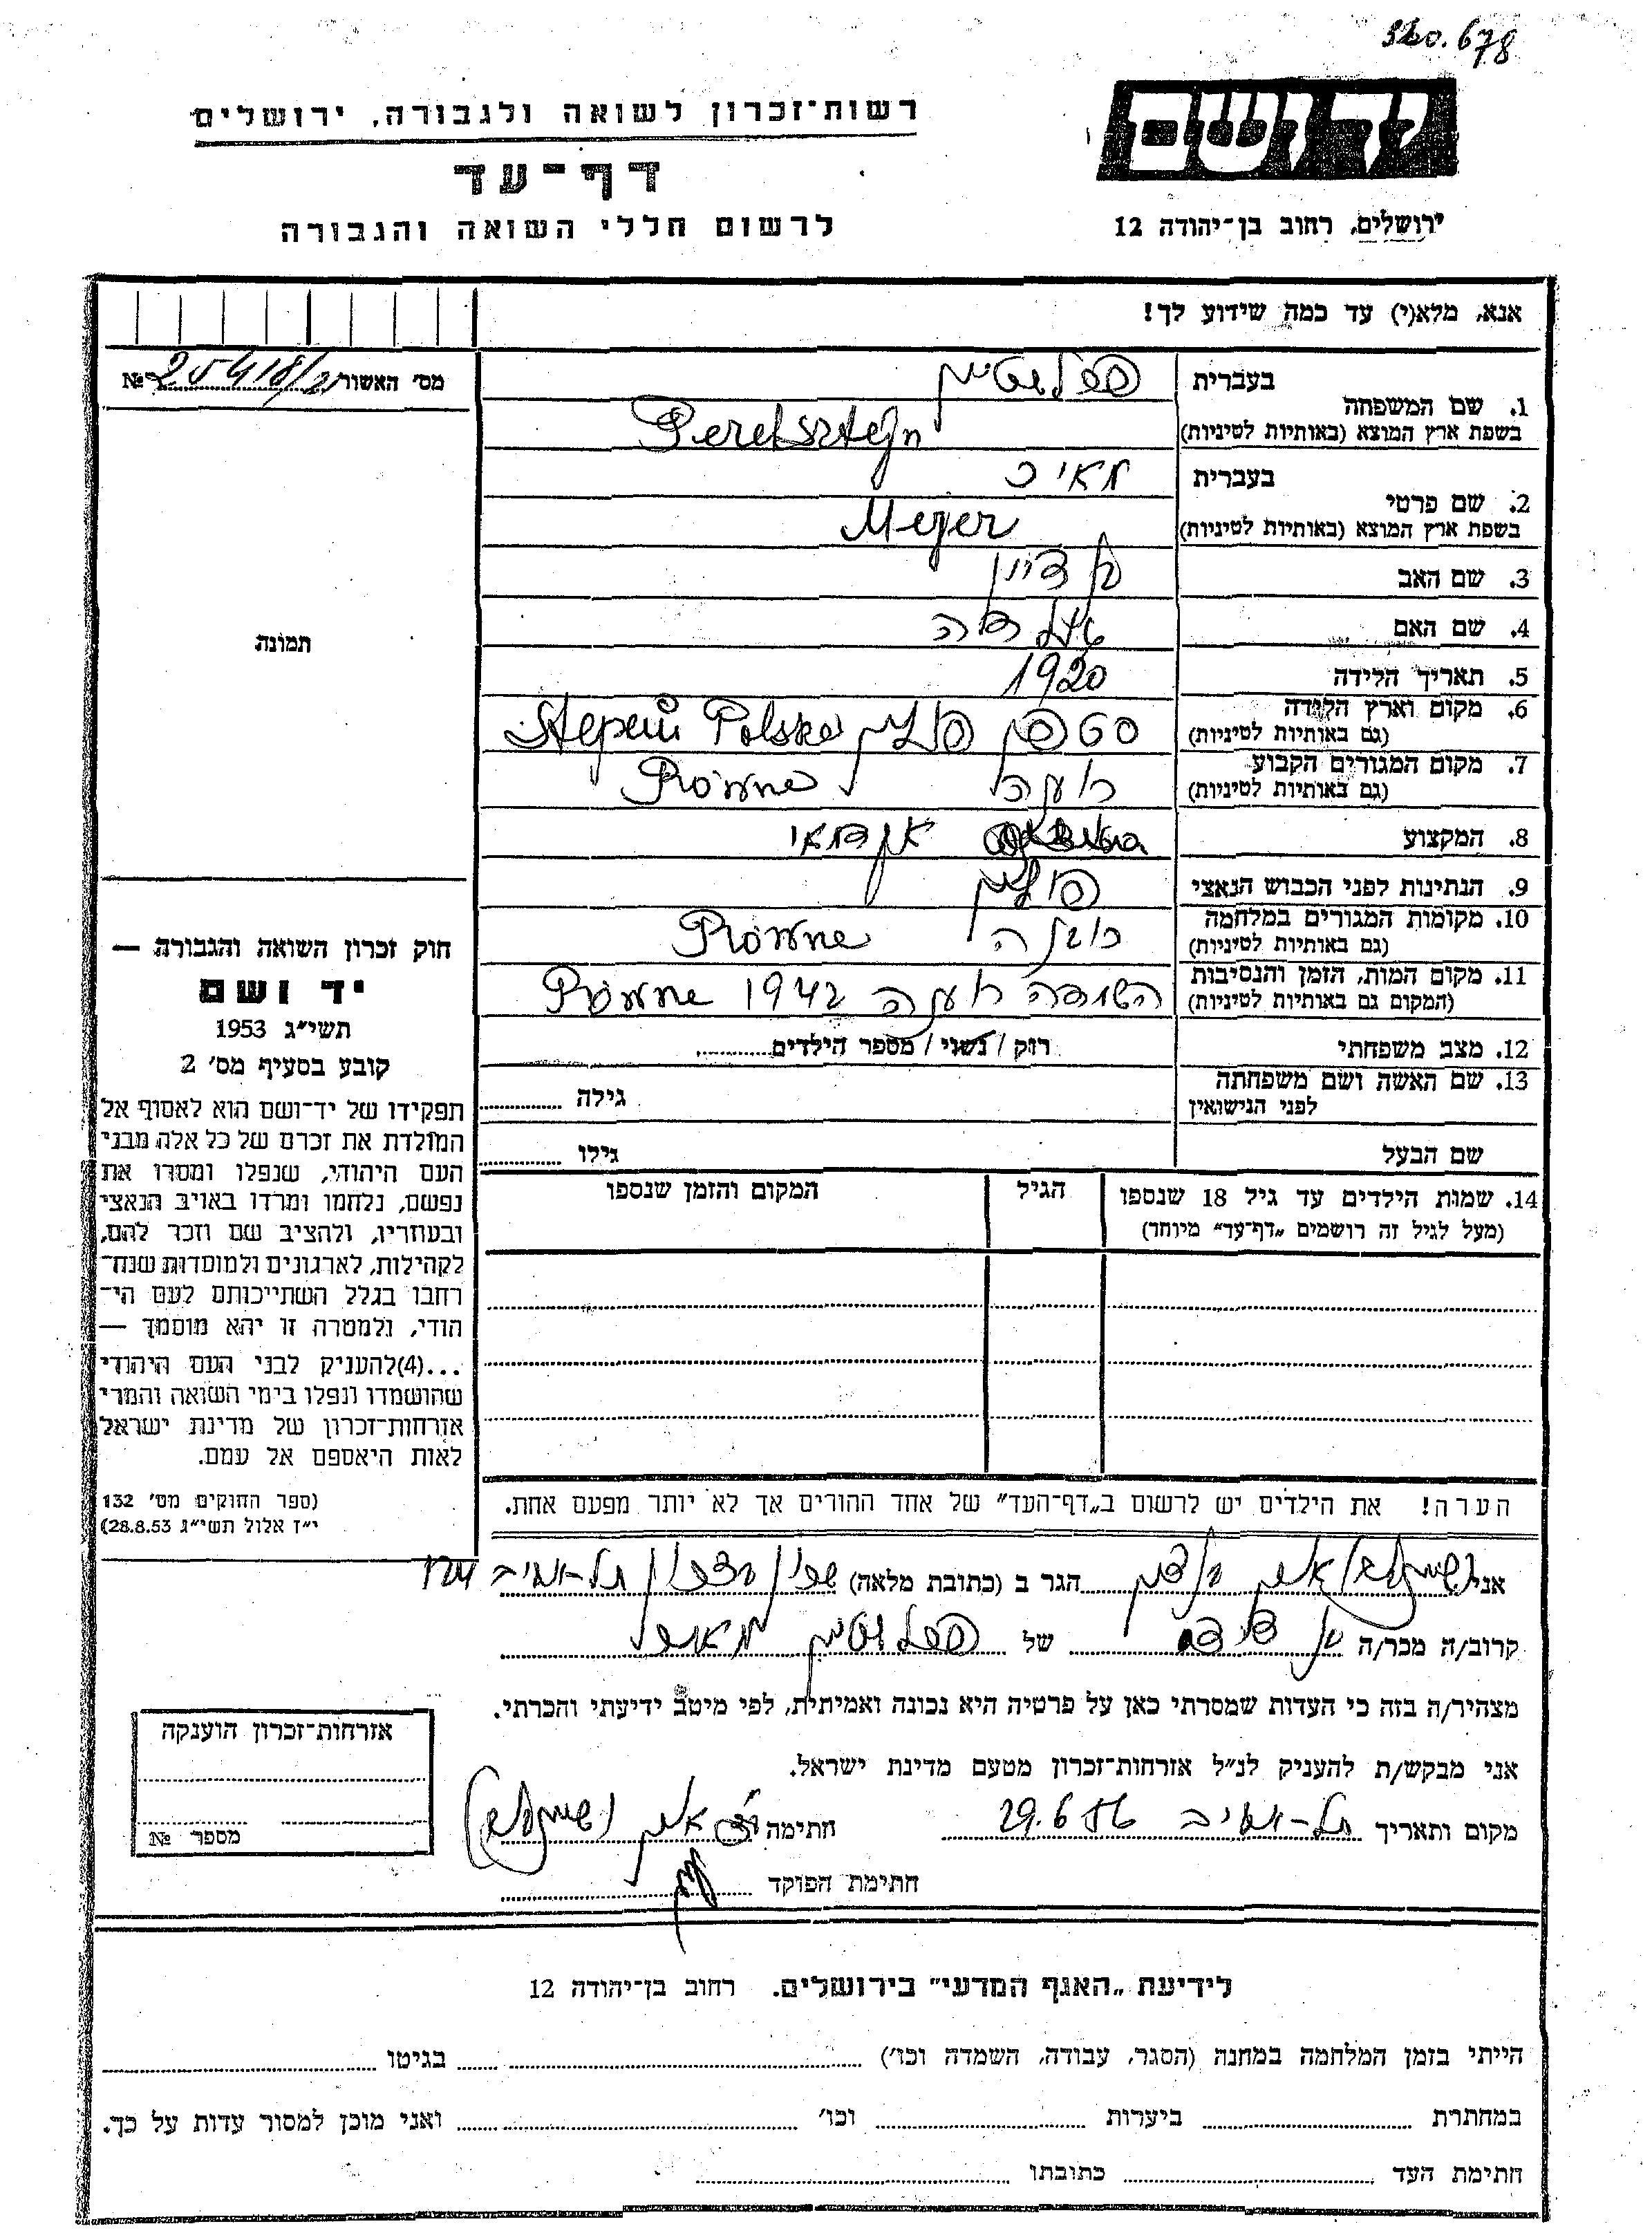 320.678
יד ושם
ירושלים, רחוב בן־יהודה 12
רשות־זכרון לשואה ולגבורה, ירושלים
דף־עד
לרשום חללי השואה והגבורה
אנא, מלא(י) עד כמה שידוע לך!
מס׳ האשור №
תמונה
1. שם המשפחה
בעברית
בשפת ארץ המוצא (באותיות לטיניות) Perelsztejn
2. שם פרטי
בעברית מאיר
בשפת ארץ המוצא (באותיות לטיניות) Mejer
3. שם האב
4. שם האם
5. תאריך הלידה 1920
6. מקום וארץ הלידה (גם באותיות לטיניות) סטפן פולין Stepań Polska
7. מקום המגורים הקבוע (גם באותיות לטיניות) רובנה Równe
8. המקצוע
9. הנתינות לפני הכבוש הנאצי פולין
10. מקומות המגורים במלחמה (גם באותיות לטיניות) רובנה Równe
11. מקום המות, הזמן והנסיבות (המקום גם באותיות לטיניות) רובנה 1942 Równe
12. מצב משפחתי רוק / נשוי / מספר הילדים
13. שם האשה ושם משפחתה לפני הנישואין
גילה
שם הבעל
גילו
14. שמות הילדים עד גיל 18 שנספו
(מעל לגיל זה רושמים „דף־עד״ מיוחד)
הגיל
המקום והזמן שנספו
הערה! את הילדים יש לרשום ב„דף־העד״ של אחד ההורים אך לא יותר מפעם אחת.
חוק זכרון השואה והגבורה —
יד ושם
תשי״ג 1953
קובע בסעיף מס׳ 2
תפקידו של יד־ושם הוא לאסוף אל
המולדת את זכרם של כל אלה מבני
העם היהודי, שנפלו ומסרו את
נפשם, נלחמו ומרדו באויב הנאצי
ובעוזריו, ולהציב שם וזכר להם,
לקהילות, לארגונים ולמוסדות שנח־
רבו בגלל השתייכותם לעם הי־
הודי, ולמטרה זו יהא מוסמך —
...(4)להעניק לבני העם היהודי
שהושמדו ונפלו בימי השואה והמרי
אזרחות־זכרון של מדינת ישראל
לאות היאספם אל עמם.
(ספר החוקים מס׳ 132
י״ז אלול תשי״ג 28.8.53)
אני הגר ב (כתובת מלאה) תל-אביב
קרוב/ה מכר/ה של
מצהיר/ה בזה כי העדות שמסרתי כאן על פרטיה היא נכונה ואמיתית, לפי מיטב ידיעתי והכרתי.
אני מבקש/ת להעניק לנ״ל אזרחות־זכרון מטעם מדינת ישראל.
מקום ותאריך תל-אביב 29.6 חתימה
חתימת הפוקד
אזרחות־זכרון הוענקה
מספר №
לידיעת „האגף המדעי״ בירושלים. רחוב בן־יהודה 12
הייתי בזמן המלחמה במחנה (הסגר, עבודה, השמדה וכו׳) בגיטו
במחתרת ביערות וכו׳ ואני מוכן למסור עדות על כך.
חתימת העד כתובתו